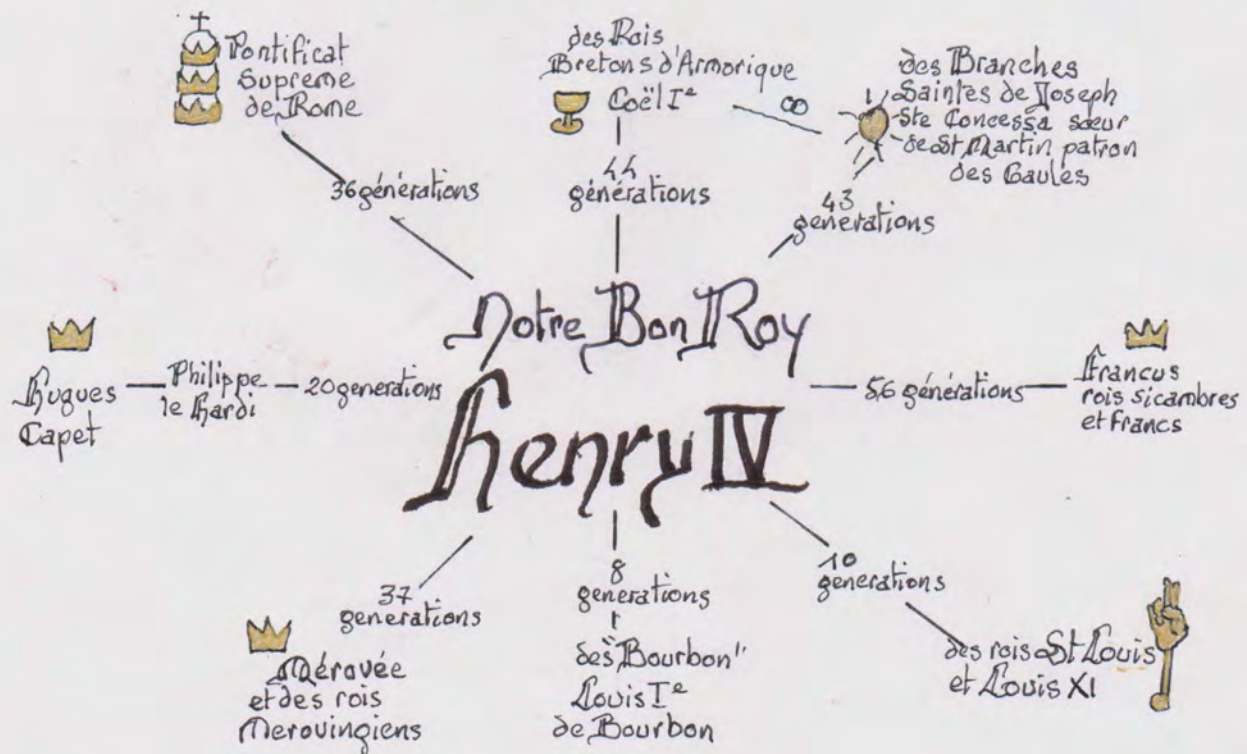 Pontificat
Supreme
de Rome
36 générations
des Rois
Bretons d'Armorique
Coël Iᵉ
44
générations
∞
des Branches
Saintes de Joseph
Ste Concessa sœur
de St Martin patron
des Gaules
43
generations
Notre Bon Roy
Henry IV
Hugues
Capet
Philippe
le Hardi
20 generations
56 générations
Francus
rois sicambres
et Francs
37
generations
Mérovée
et des rois
Merovingiens
8
generations
des "Bourbon"
Louis Iᵉ
de Bourbon
10
generations
des rois St Louis
et Louis XI